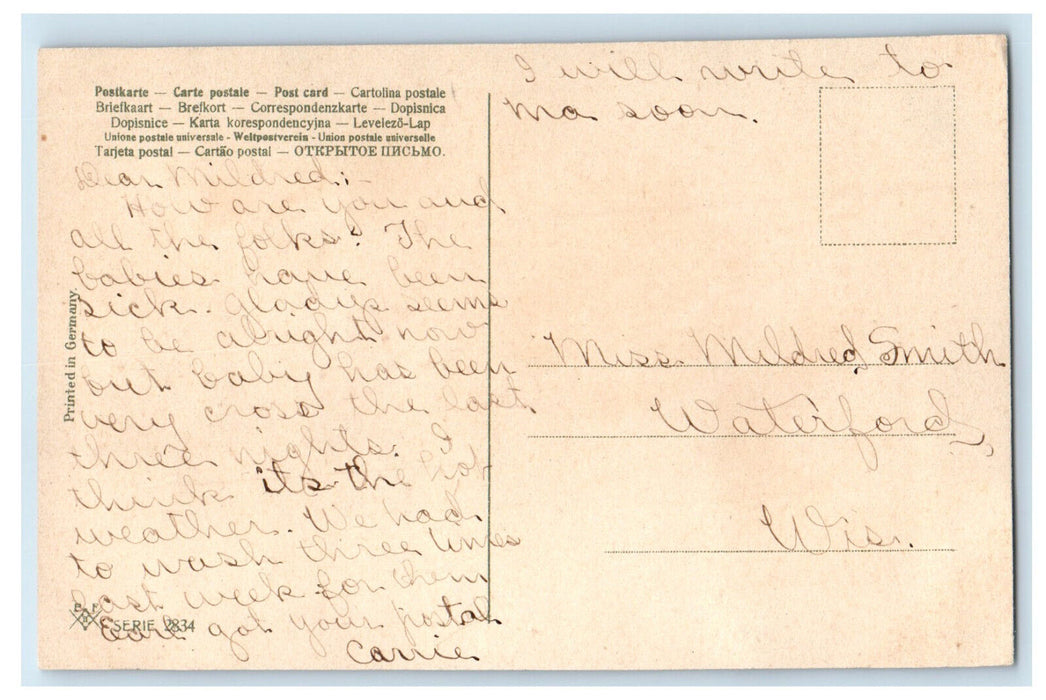 Postkarte — Carte postale — Post card — Cartolina postale
Briefkaart — Brefkort — Correspondenzkarte — Dopisnica
Dopisnice — Karta korespondencyjna — Levelező-Lap
Unione postale universale - Weltpostverein - Union postale universelle
Tarjeta postal — Cartão postal — ОТКРЫТОЕ ПИСЬМО.
Dear Mildred;-
How are you and
all the folks? The
babies have been
sick. Gladys seems
to be alright now
but baby has been
very cross the last
three nights. I
think its the hot
weather. We had
to wash three times
last week for them
Earl got your postal
Carrie
I will write to
ma soon.
Miss Mildred Smith
Waterford,
Wis.
Printed in Germany.
SERIE 2834